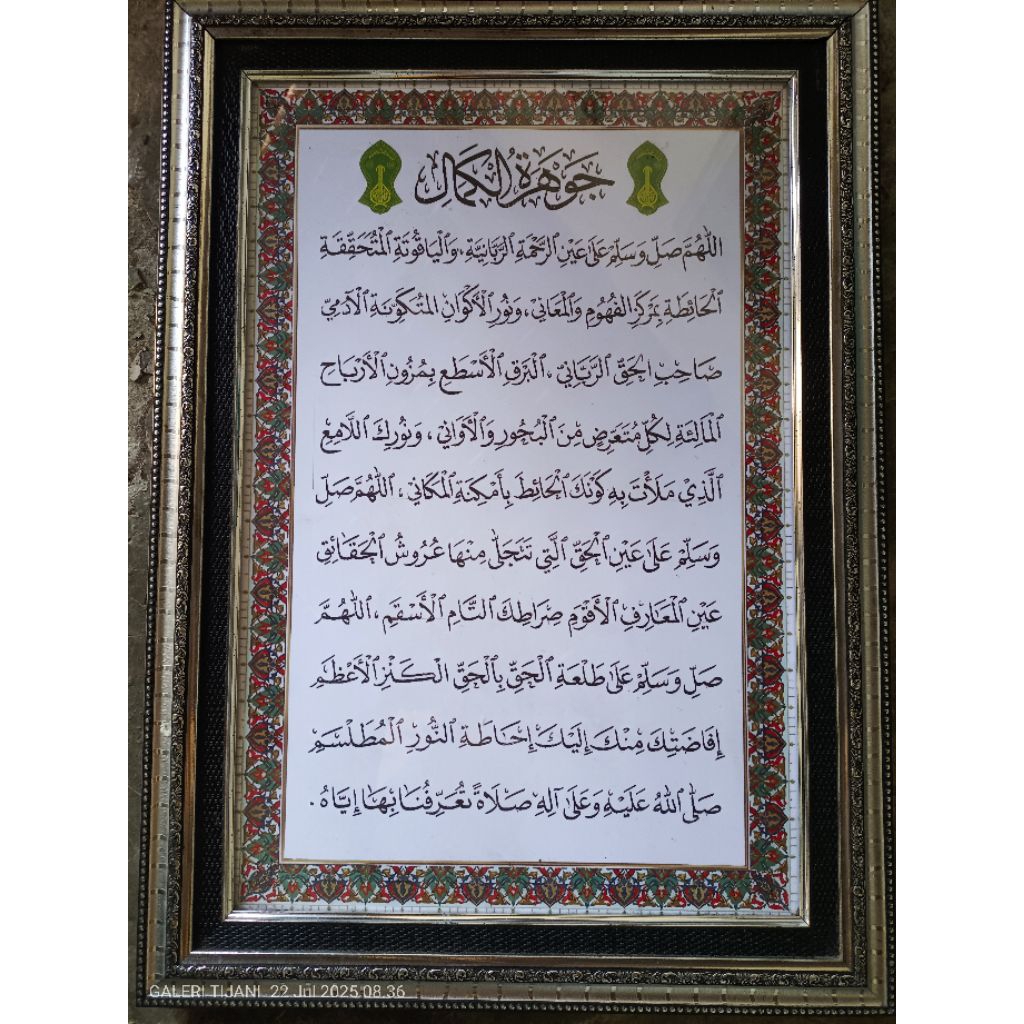 جَوْهَرَةُ الْكَمَالِ
اَللّٰهُمَّ صَلِّ وَسَلِّمْ عَلَى عَيْنِ الرَّحْمَةِ الرَّبَّانِيَّةِ، وَالْيَاقُوتَةِ الْمُتَحَقِّقَةِ
الْحَائِطَةِ بِمَرْكَزِ الْفُهُومِ وَالْمَعَانِي، وَنُورِ الْأَكْوَانِ الْمُتَكَوِّنَةِ الْآدَمِيِّ
صَاحِبِ الْحَقِّ الرَّبَّانِيِّ، الْبَرْقِ الْأَسْطَعِ بِمُزُونِ الْأَرْبَاحِ
الْمَالِئَةِ لِكُلِّ مُتَعَرِّضٍ مِنَ الْبُحُورِ وَالْأَوَانِي، وَنُورِكَ اللَّامِعِ
الَّذِي مَلَأْتَ بِهِ كَوْنَكَ الْحَائِطَ بِأَمْكِنَةِ الْمَكَانِي، اَللّٰهُمَّ صَلِّ
وَسَلِّمْ عَلَى عَيْنِ الْحَقِّ الَّتِي تَتَجَلَّى مِنْهَا عُرُوشُ الْحَقَائِقِ
عَيْنِ الْمَعَارِفِ الْأَقْوَمِ صِرَاطِكَ التَّامِ الْأَسْقَمِ، اَللّٰهُمَّ
صَلِّ وَسَلِّمْ عَلَى طَلْعَةِ الْحَقِّ بِالْحَقِّ الْكَنْزِ الْأَعْظَمِ
إِفَاضَتِكَ مِنْكَ إِلَيْكَ إِحَاطَةِ النُّورِ الْمُطَلْسَمِ
صَلَّى اللهُ عَلَيْهِ وَعَلَى آلِهِ صَلَاةً تُعَرِّفُنَا بِهَا إِيَّاهُ.
GALERI TIJANI 22 Jul 2025 08.36